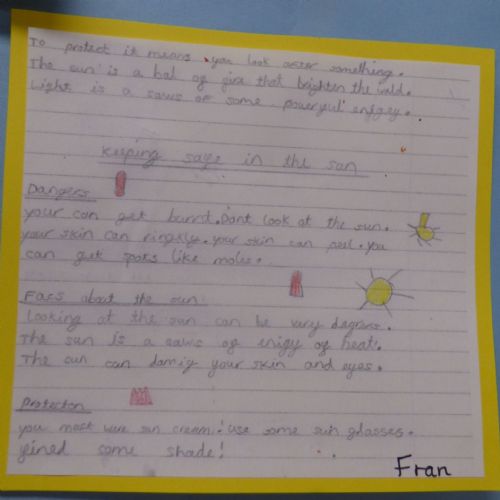 To protect it means you look after something.
The sun is a bal of fire that brighten the wrld.
Light is a saws of some powerful enirgey.
Keeping safe in the sun
Dangers
your can get burnt. Dont look at the sun.
your skin can ringkly. your skin can peel. you
can get spots like moles.
Facs about the sun
Looking at the sun can be very degrers.
The sun is a saws of enigy of heat.
The sun can damig your skin and eyes.
Protecton
you most were sun cream! use some sun glasses.
yeined some shade!
Fran